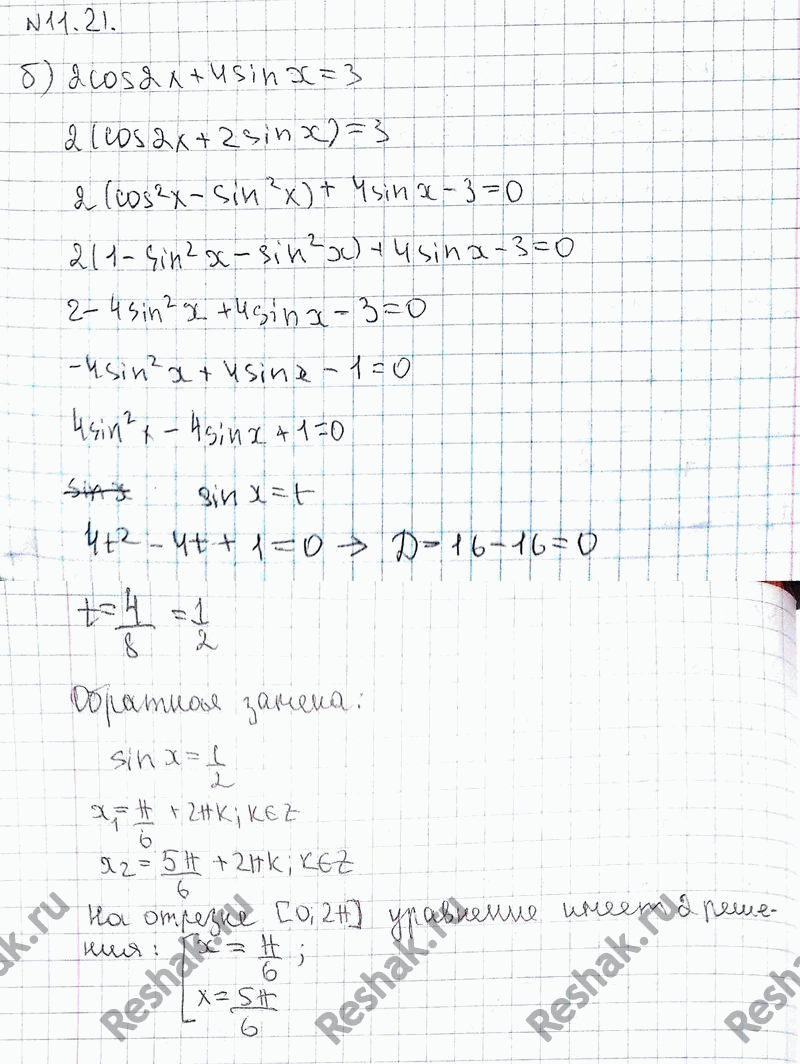 N11.21.
б) 2cos2x+4sinx=3
2(cos2x+2sinx)=3
2(cos²x-sin²x)+4sinx-3=0
2(1-sin²x-sin²x)+4sinx-3=0
2-4sin²x+4sinx-3=0
-4sin²x+4sinx-1=0
4sin²x-4sinx+1=0
sinx sinx=t
4t²-4t+1=0 → D=16-16=0
t=4/8 =1/2
Обратная замена:
sin x=1/2
x₁=π/6 +2πk; k∈Z
x₂=5π/6 +2πk; k∈Z
На отрезке [0;2π] уравнение имеет 2 реше-
ния: [x=π/6;
x=5π/6
Reshak.ru
Reshak.ru
Reshak.ru
Reshak.ru